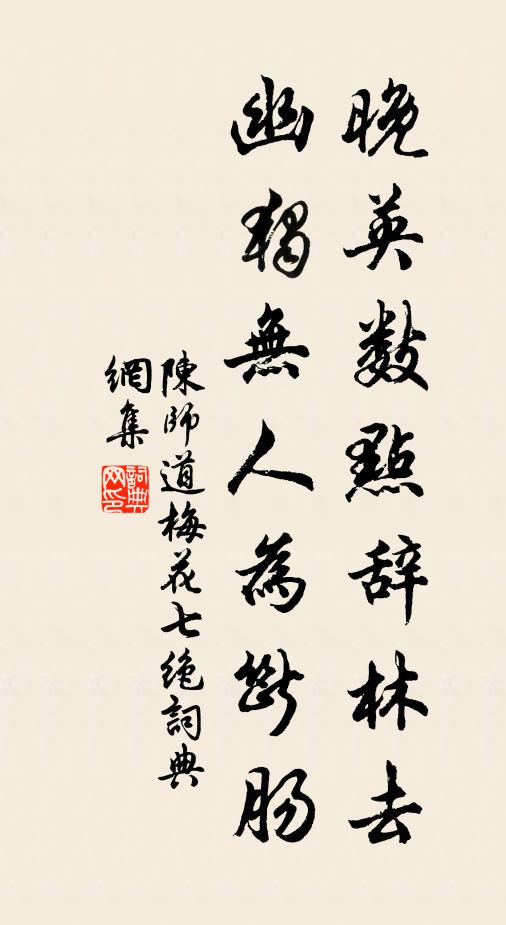 晚英数點辞林去
幽獨無人為断腸
陳師道梅花七绝詞典
網集
詞典
网印